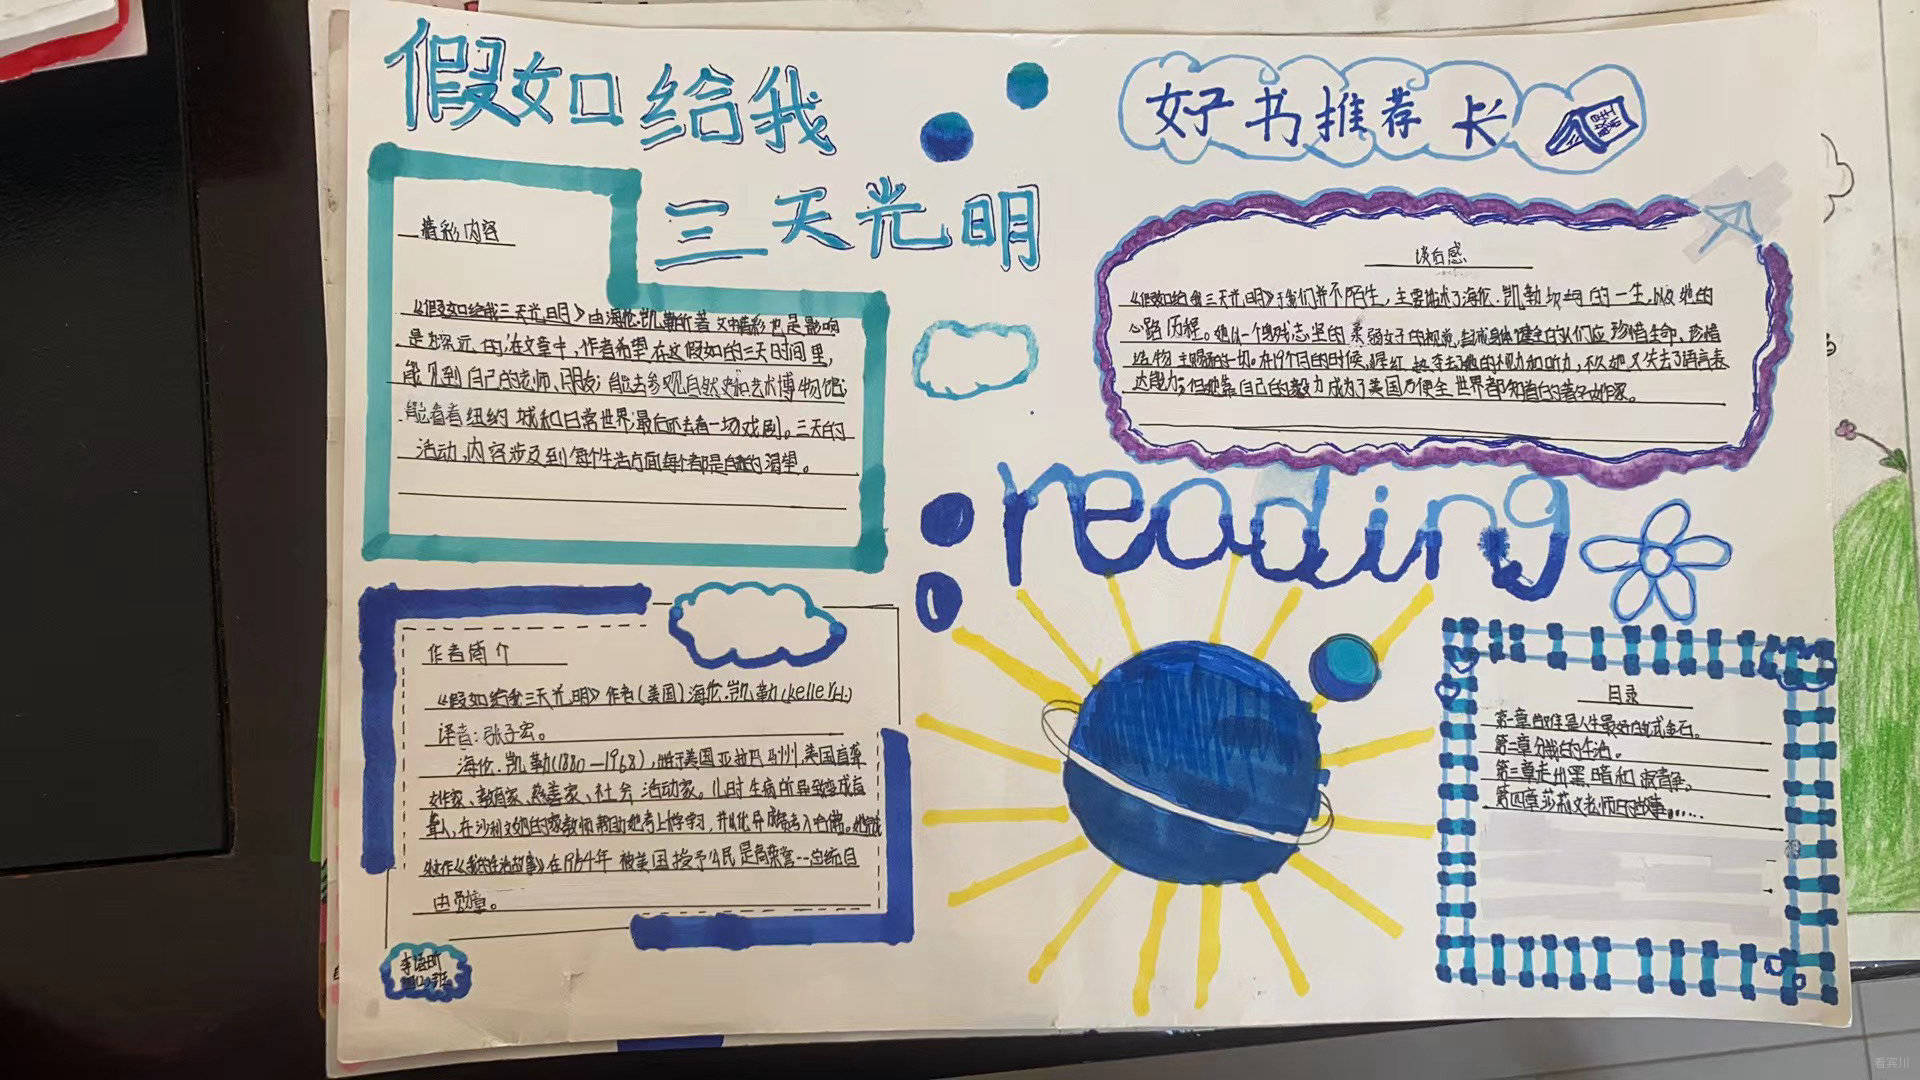 假如给我
三天光明
好书推荐卡
精彩内容
《假如给我三天光明》由海伦.凯勒所著文中精彩也是影响
是为深远的,在文章中,作者希望在这假如的三天时间里,
能见到自己的老师、朋友;能去参观自然史和艺术博物馆;
能看看纽约城和日常世界;最后还去看一场戏剧。三天的
活动,内容涉及到每个生活方面每个都是自己的渴望。
读后感
《假如给我三天光明》于我们并不陌生,主要描述了海伦.凯勒坎坷的一生,以及她的
心路历程。她以一个身残志坚的柔弱女子的视觉,告诫身体健全的人们应珍惜生命,珍惜
造物主赐的一切。在19个月的时候,猩红热夺去了她的视力和听力,不久她又失去了语言表
达能力;但她靠自己的毅力成为了美国乃使全世界都知名的著名女作家。
reading
作者简介
《假如给我三天光明》作者(美国)海伦.凯勒(Keller H.)
译者:张子宏。
海伦.凯勒(1880—1968),出生于美国亚拉巴马州,美国盲聋
女作家、教育家、慈善家、社会活动家。儿时生病所导致变成盲
聋人,在沙利文她的家教师帮助她考上大学学习,并以优异成绩考入哈佛。她完成
处女作《我的生活故事》在1964年被美国授予公民最高荣誉--总统自
由勋章。
目录
第一章 苦难是人生最好的试金石。
第二章 分我的生活。
第三章 走出黑暗和寂静。
第四章 莎莉文老师的故事......
看宾川